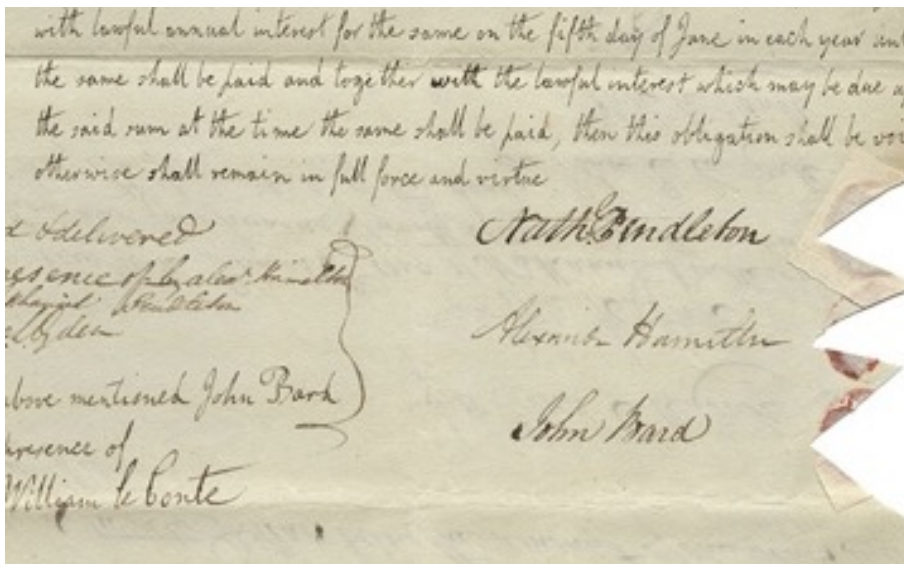 with lawful annual interest for the same on the fifth day of June in each year unt
the same shall be paid and together with the lawful interest which may be due up
the said sum at the time the same shall be paid, then this obligation shall be voi
otherwise shall remain in full force and virtue
d & delivered
esence of by Alexr Hamilton
thaniel Pendleton
above mentioned John Bard
presence of
William le Conte
Nath Pendleton
Alexander Hamilton
John Bard